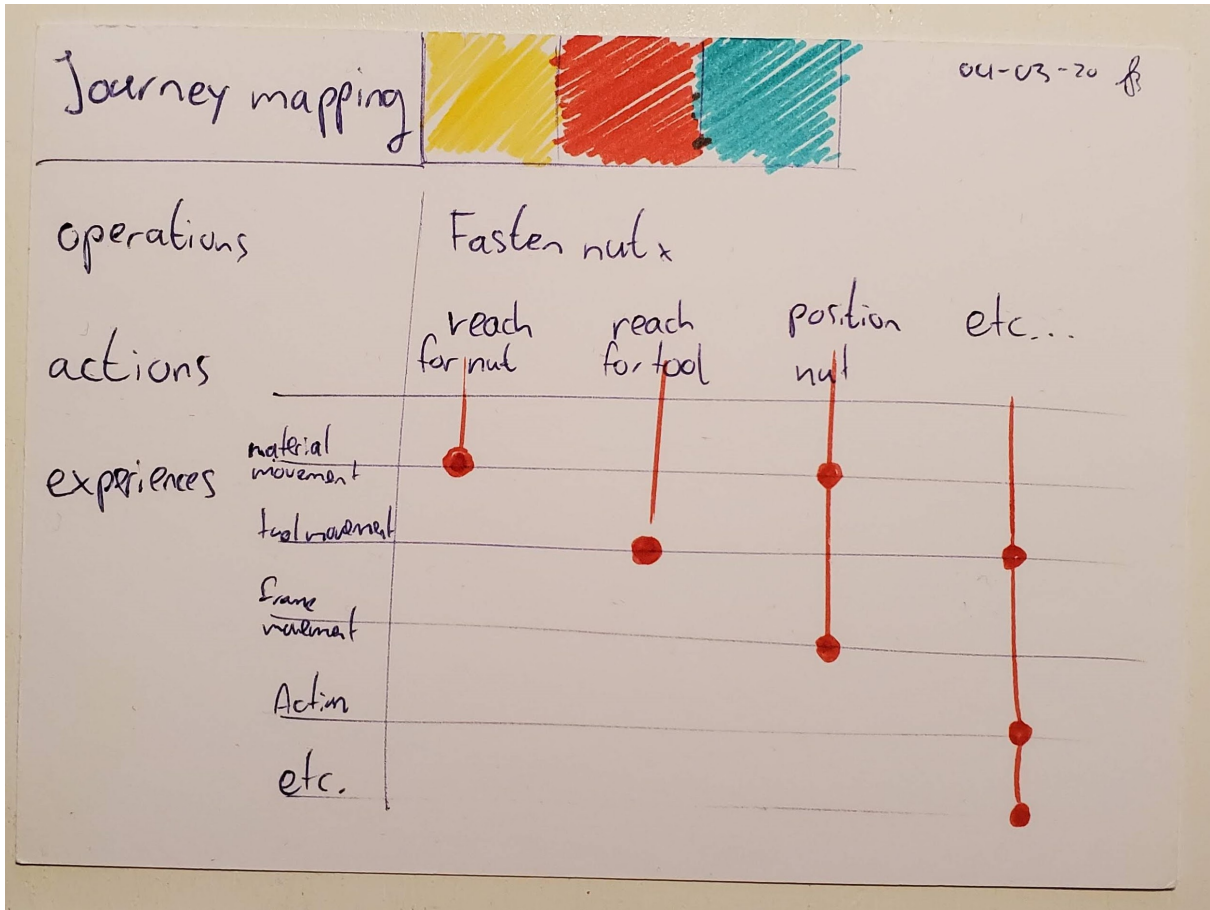 Journey mapping
04-03-20
operations
Fasten nut x
actions
reach
for nut
reach
for tool
position
nut
etc...
experiences
material
movement
tool movement
frame
movement
Action
etc.